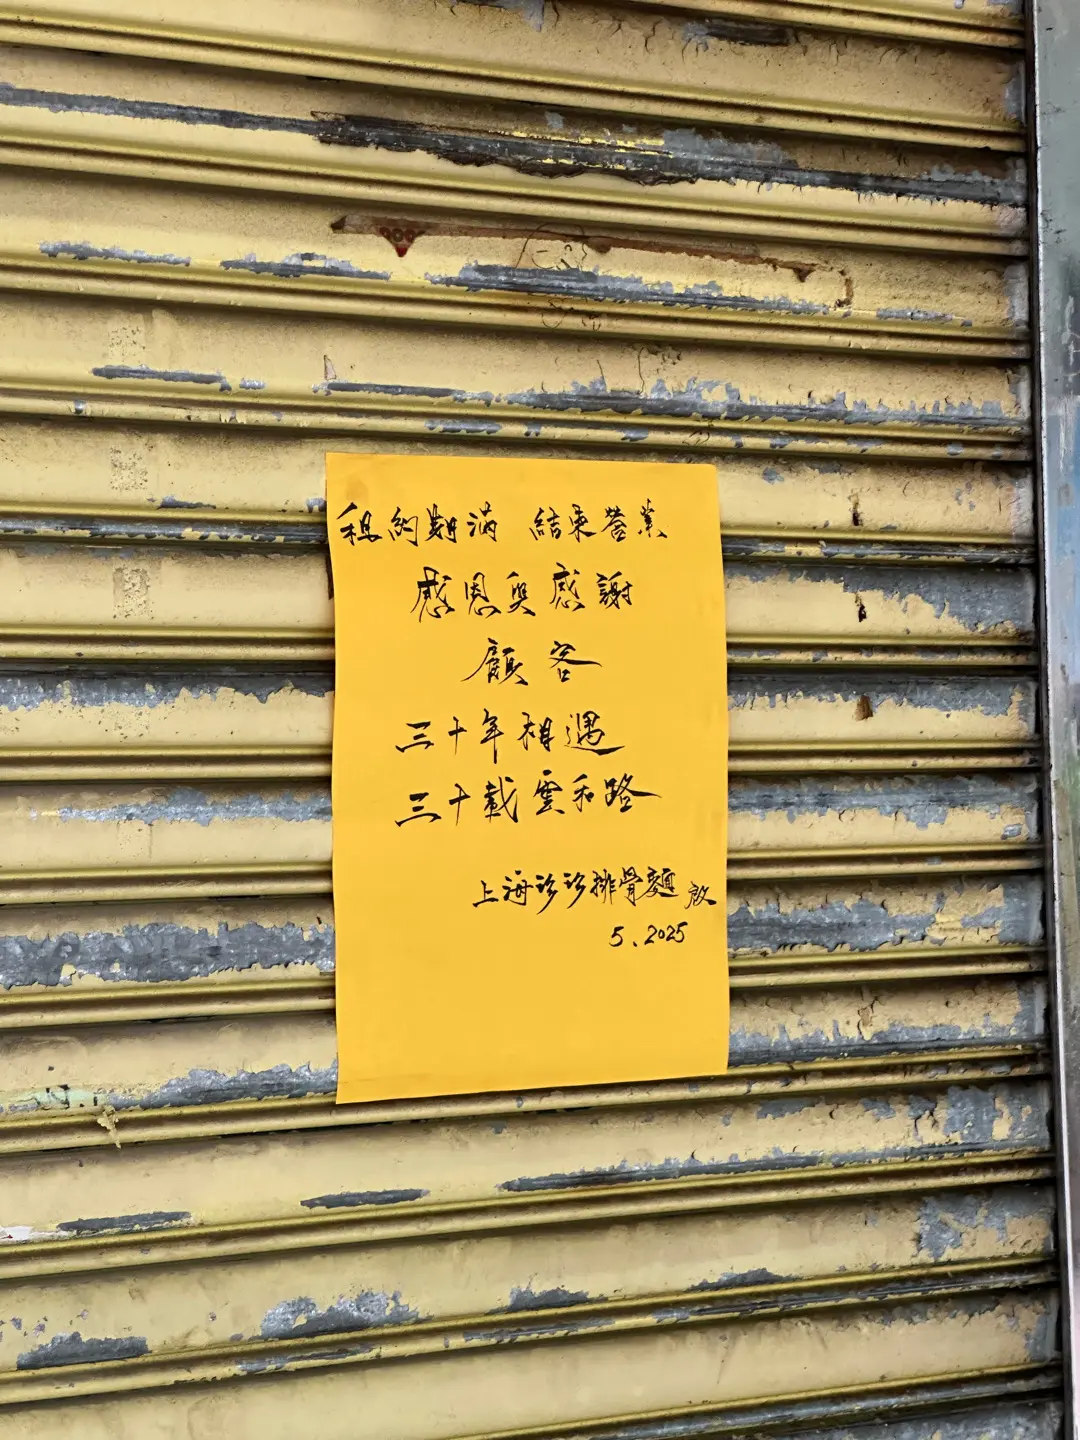 租約期滿 結束營業
感恩與感謝
顧客
三十年相遇
三十載雲和路
上海診診排骨麵 啟
5.2025